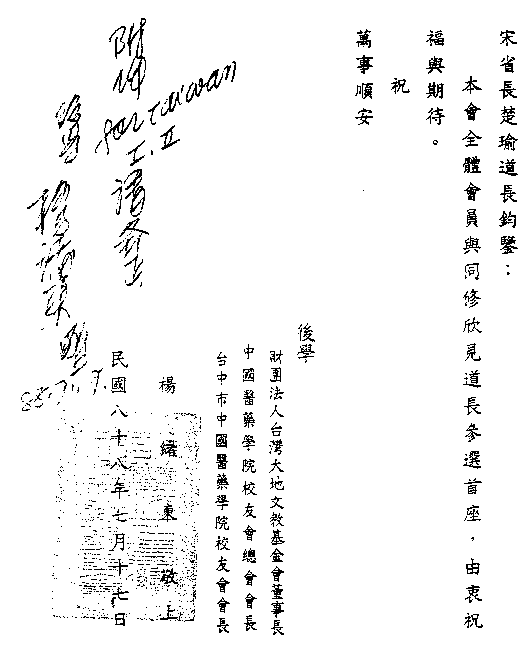 宋省長楚瑜道長鈞鑒：
本會全體會員與同修欣見道長參選首座，由衷祝
福與期待。
祝
萬事順安
後學
財團法人台灣大地文教基金會董事長
中國醫藥學院校友會總會會長
台中市中國醫藥學院校友會會長
楊緒東敬上
民國八十八年七月十七日
附件
for taiwan
I.II